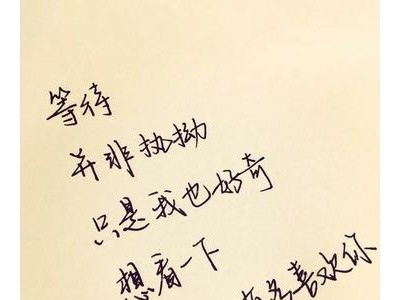 等待
并非执拗
只是我也好奇
想看一下
多喜欢你